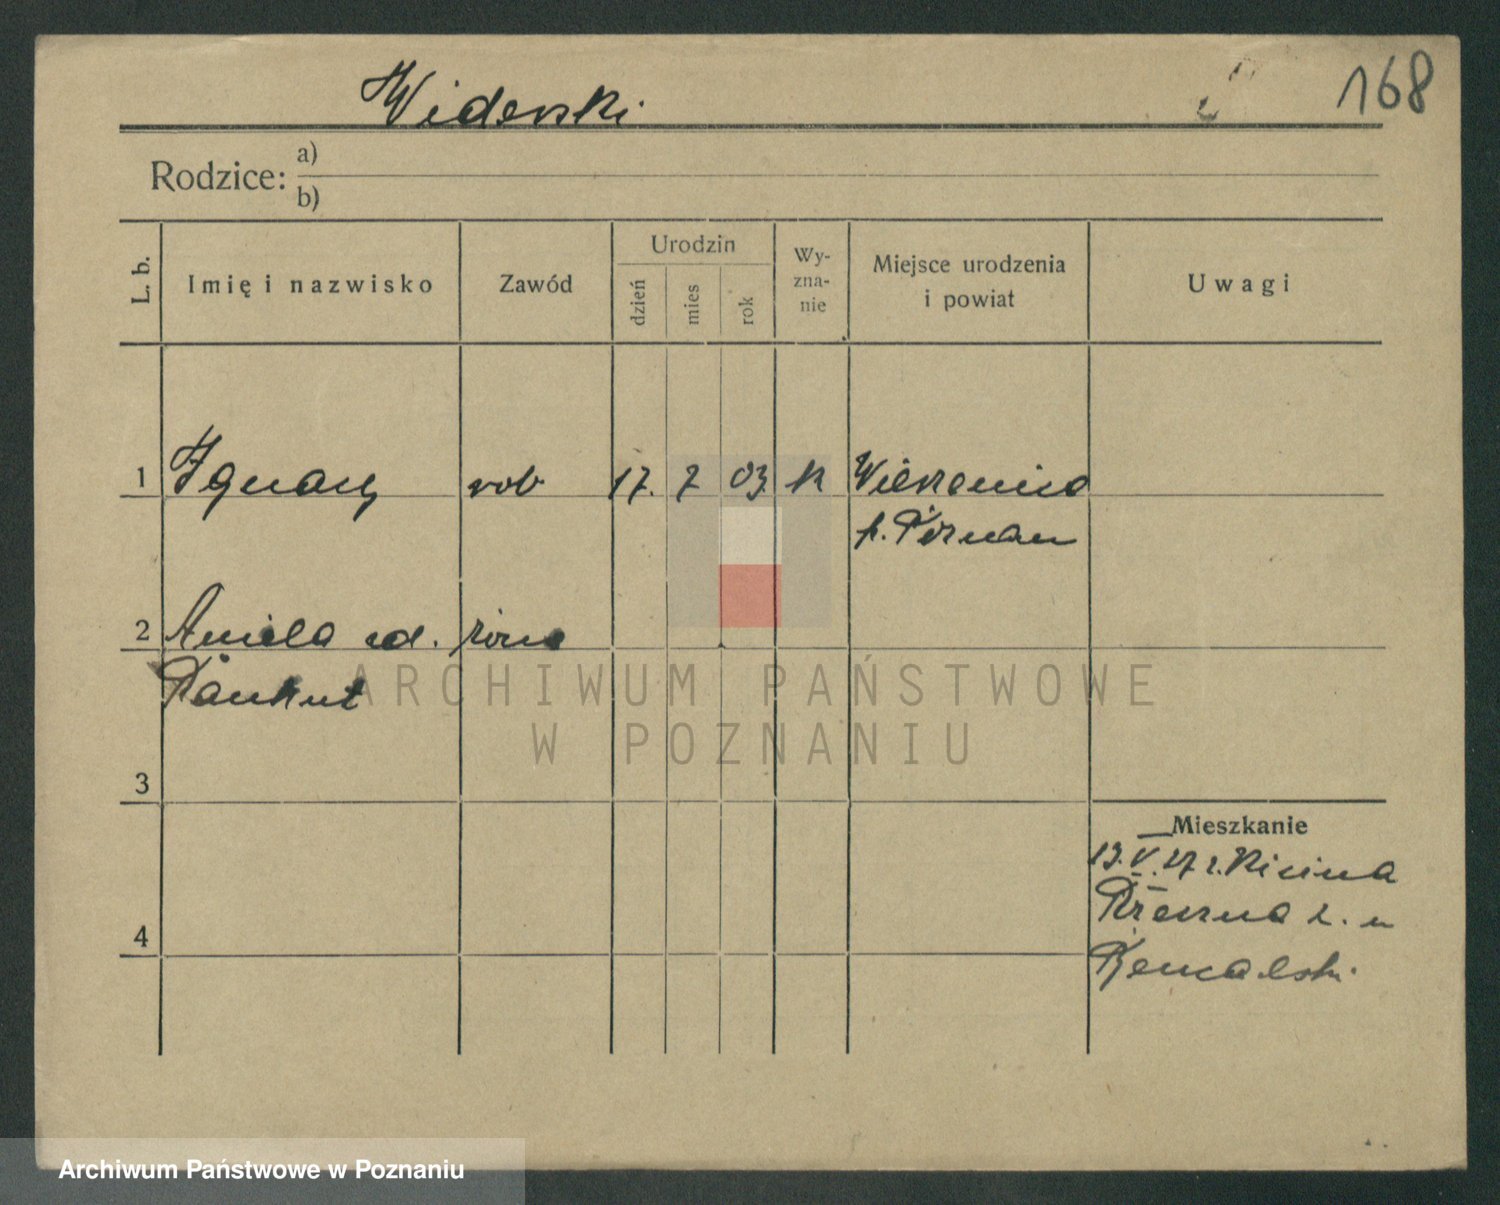 168
Widerski
Rodzice: a)
b)
L. b.
Imię i nazwisko
Zawód
Urodzin
dzień
mies
rok
Wy-
zna-
nie
Miejsce urodzenia
i powiat
Uwagi
1 Ignacy rob 17. 7 03 k
p. Poznan
2 Aniela zd. żona
3
4
Mieszkanie
27 r.
ARCHIWUM PAŃSTWOWE
W POZNANIU
Archiwum Państwowe w Poznaniu